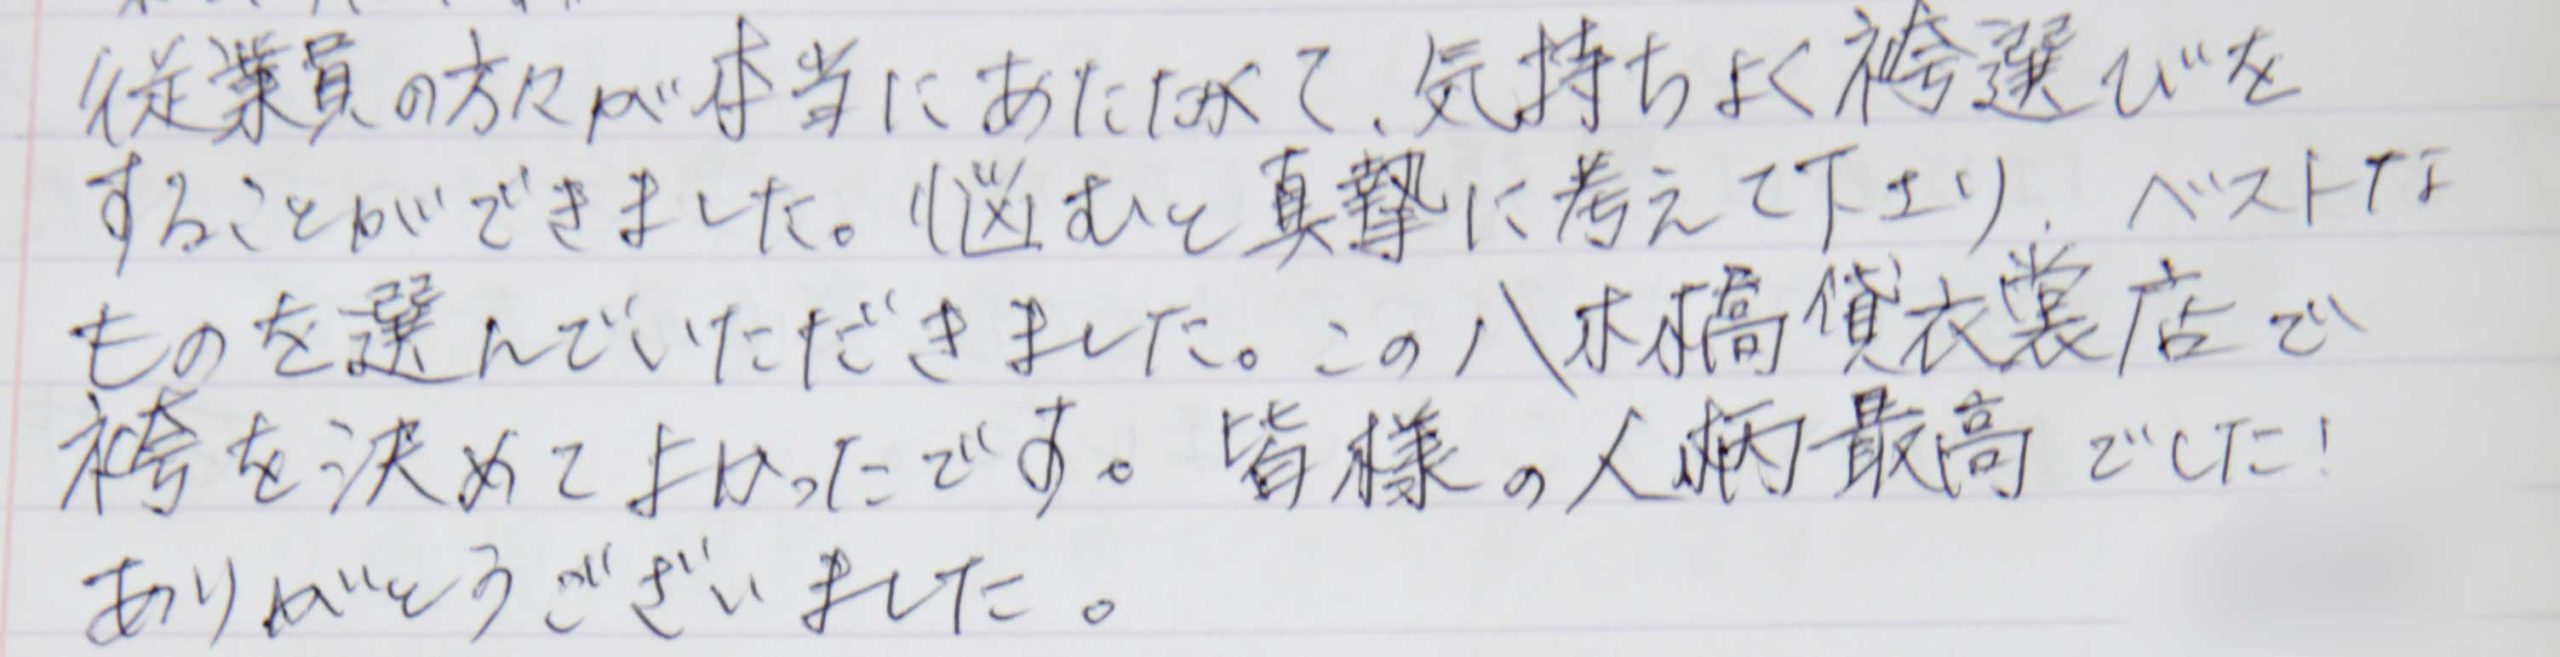 従業員の方々が本当にあたたかくて、気持ちよく袴選びを
することができました。悩むと真摯に考えて下さり、ベストな
ものを選んでいただきました。この八木橋貸衣裳店で
袴を決めてよかったです。皆様の人柄最高でした!
ありがとうございました。